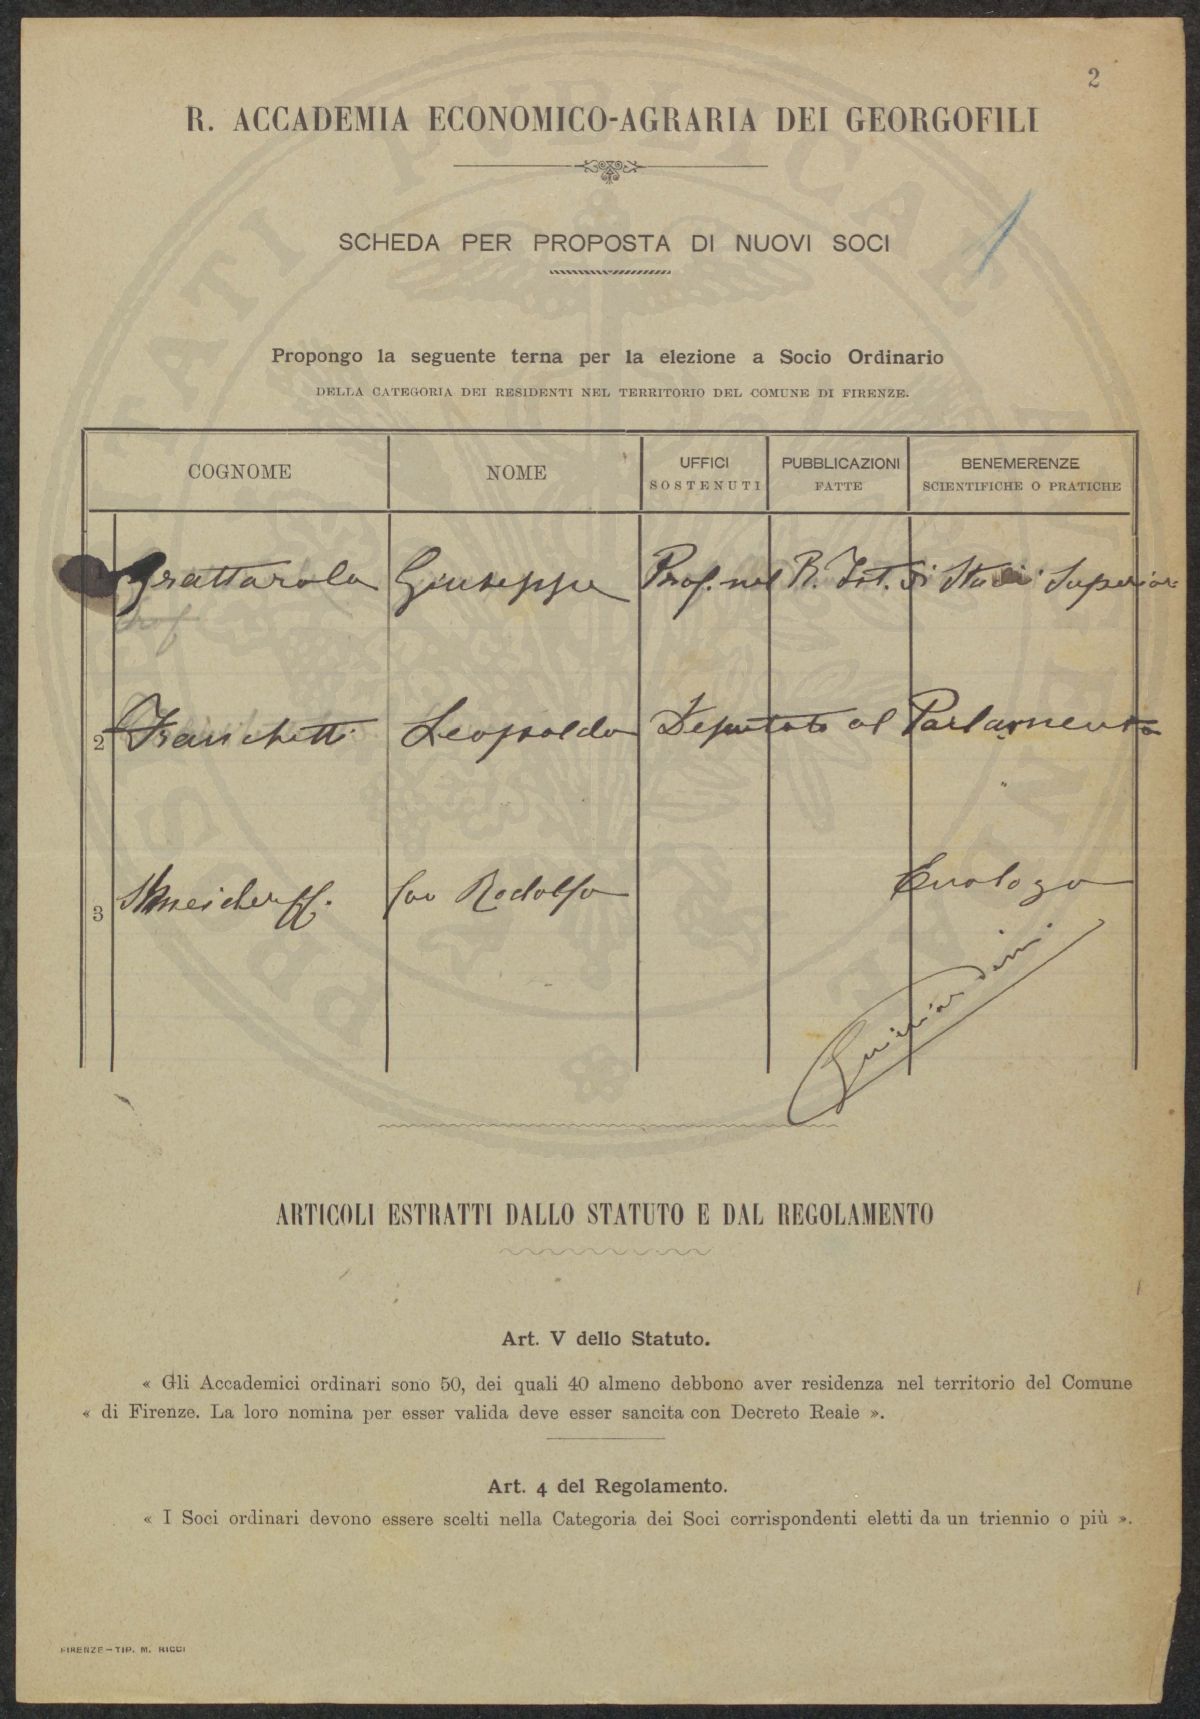 2
R. ACCADEMIA ECONOMICO-AGRARIA DEI GEORGOFILI
1
SCHEDA PER PROPOSTA DI NUOVI SOCI
Propongo la seguente terna per la elezione a Socio Ordinario
DELLA CATEGORIA DEI RESIDENTI NEL TERRITORIO DEL COMUNE DI FIRENZE.
COGNOME NOME UFFICI SOSTENUTI PUBBLICAZIONI FATTE BENEMERENZE SCIENTIFICHE O PRATICHE
Grattarola Giuseppe Prof. nel R. Ist. di Studi Superiori
Prof
2 Franchetti Leopoldo Deputato al Parlamento
3 Rodolfo Enologo
ARTICOLI ESTRATTI DALLO STATUTO E DAL REGOLAMENTO
Art. V dello Statuto.
« Gli Accademici ordinari sono 50, dei quali 40 almeno debbono aver residenza nel territorio del Comune
« di Firenze. La loro nomina per esser valida deve esser sancita con Decreto Reale ».
Art. 4 del Regolamento.
« I Soci ordinari devono essere scelti nella Categoria dei Soci corrispondenti eletti da un triennio o più ».
FIRENZE — TIP. M. RICCI
PROSPERITATI PUBLICAE AUGENDAE